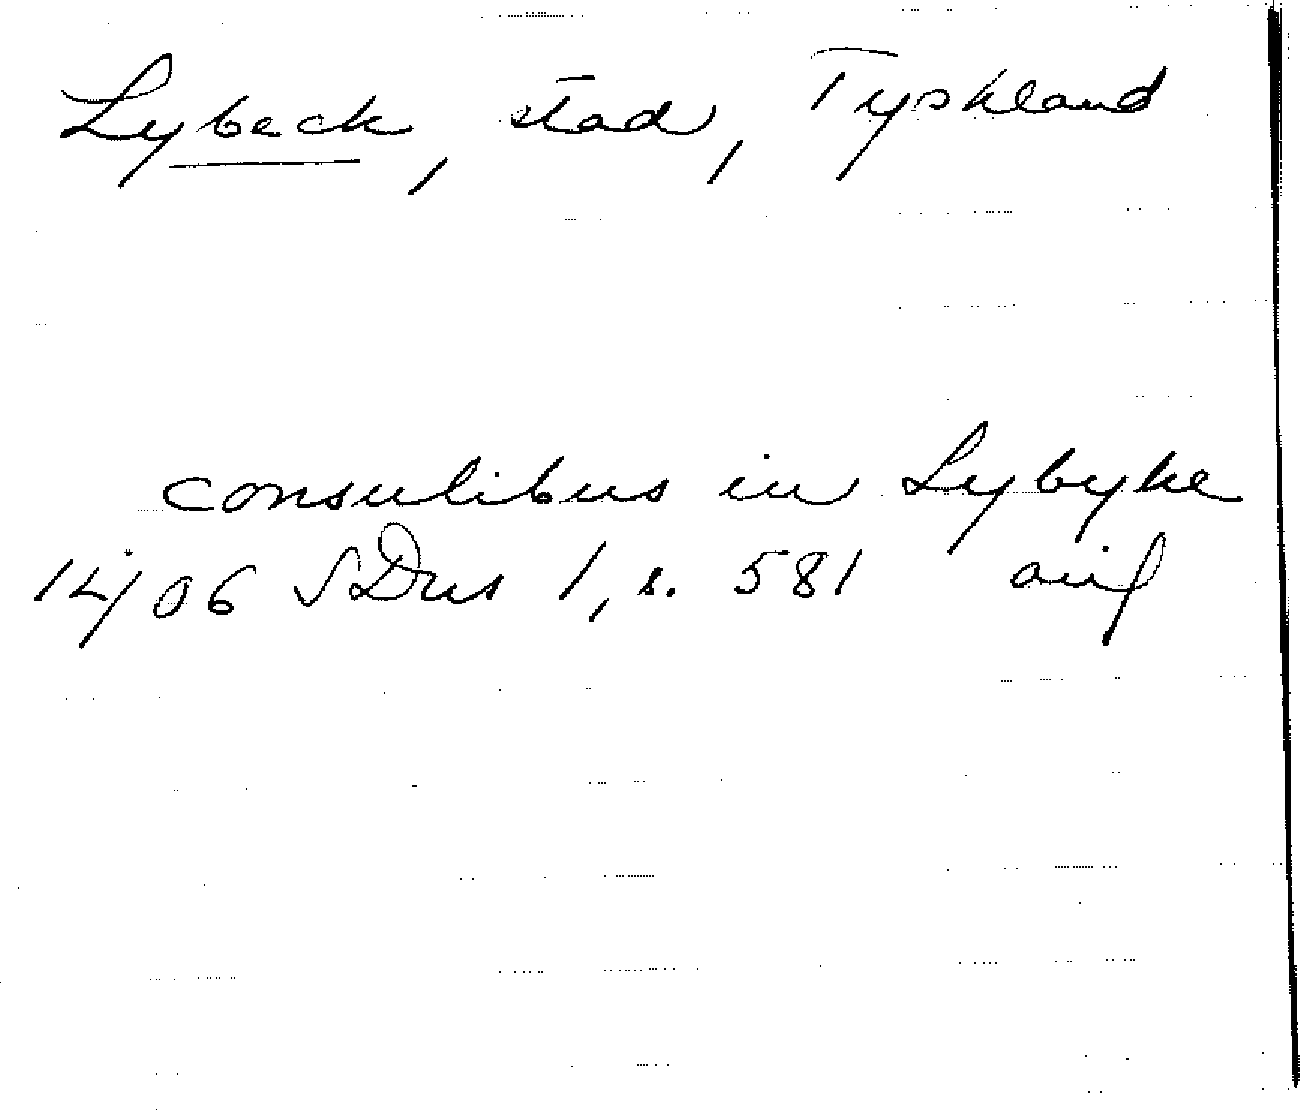 Lybeck, stad, Tyskland
consulibus in Lybyke
1406 SDns 1, s. 581 avs